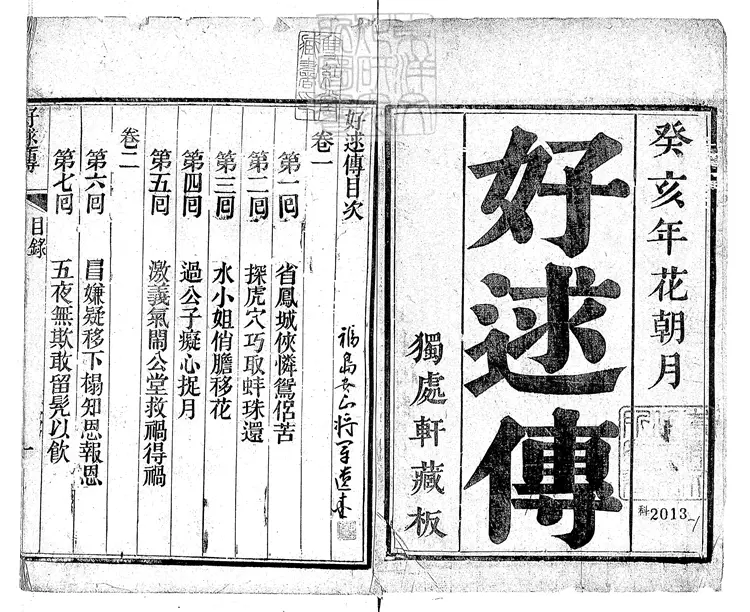 癸亥年花朝月
好逑傳
獨處軒藏板
科2013
好逑傳目次
卷一
第一囘 省鳳城俠憐鴛侶苦
第二囘 探虎穴巧取蚌珠還
第三囘 水小姐俏膽移花
第四囘 過公子癡心捉月
第五囘 激義氣鬧公堂救禍得禍
卷二
第六囘 冒嫌疑移下榻知恩報恩
第七囘 五夜無欺敢留髡以飲
好逑傳
目錄
一